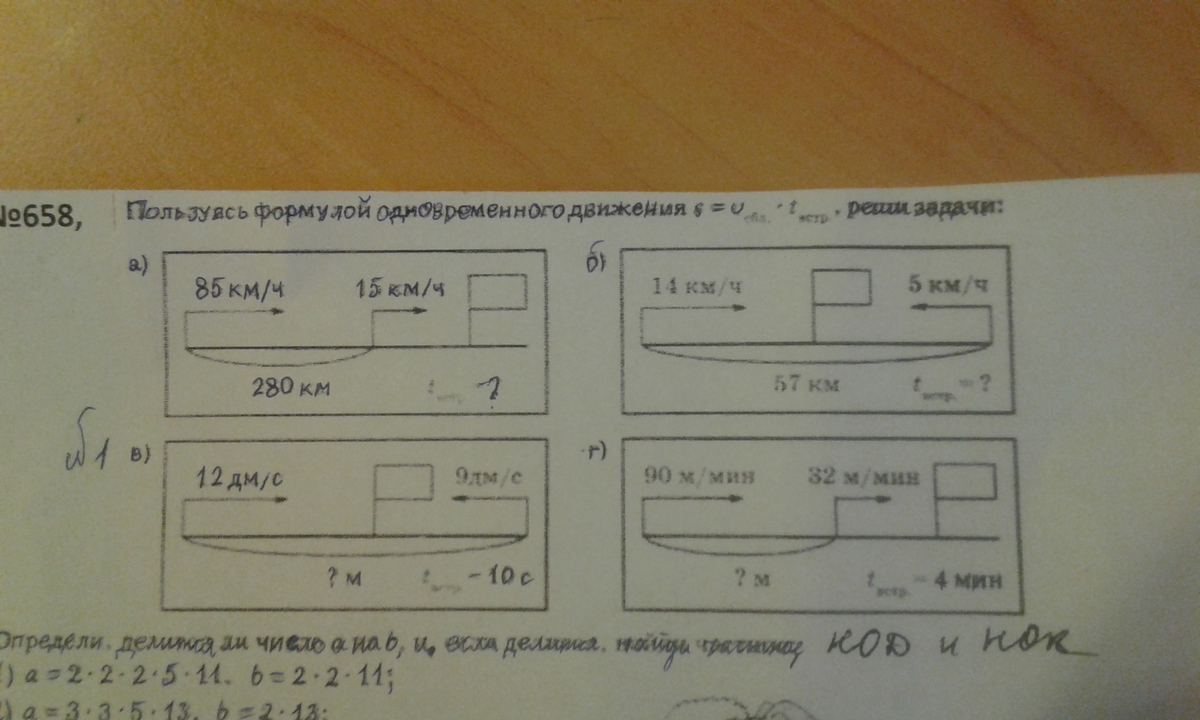 №658, Пользуясь формулой одновременного движения s = υ сбл. · t встр., реши задачи:
а) 85 км/ч 15 км/ч
280 км t встр. - ?
б) 14 км/ч 5 км/ч
57 км t встр. = ?
№1
в) 12 дм/с 9дм/с
? м t встр. - 10 с
г) 90 м/мин 32 м/мин
? м t встр. = 4 мин
Определи, делится ли число a на b, и, если делится, найди частное НОД и НОК
) a = 2·2·2·5·11. b = 2·2·11;
) a = 3·3·5·13. b = 2·13;